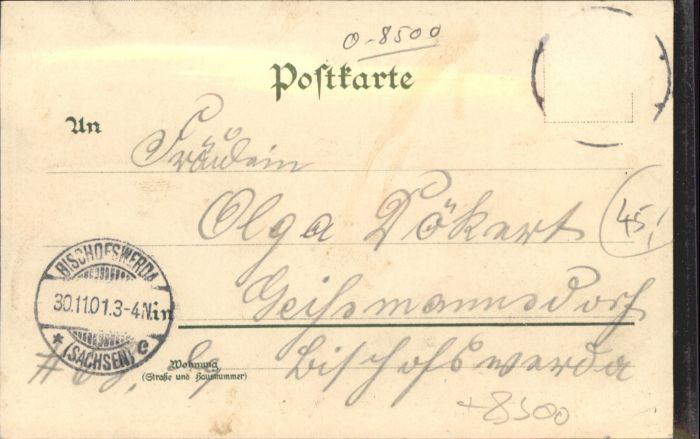 O-8500
Postkarte
An
Fräulein
Olga Dökert
45,
BISCHOFSWERDA
30.11.01.3-4N.
* (SACHSEN) c
in
Geißmannsdorf
Wohnung
(Straße und Hausnummer)
Bischofswerda
+8500